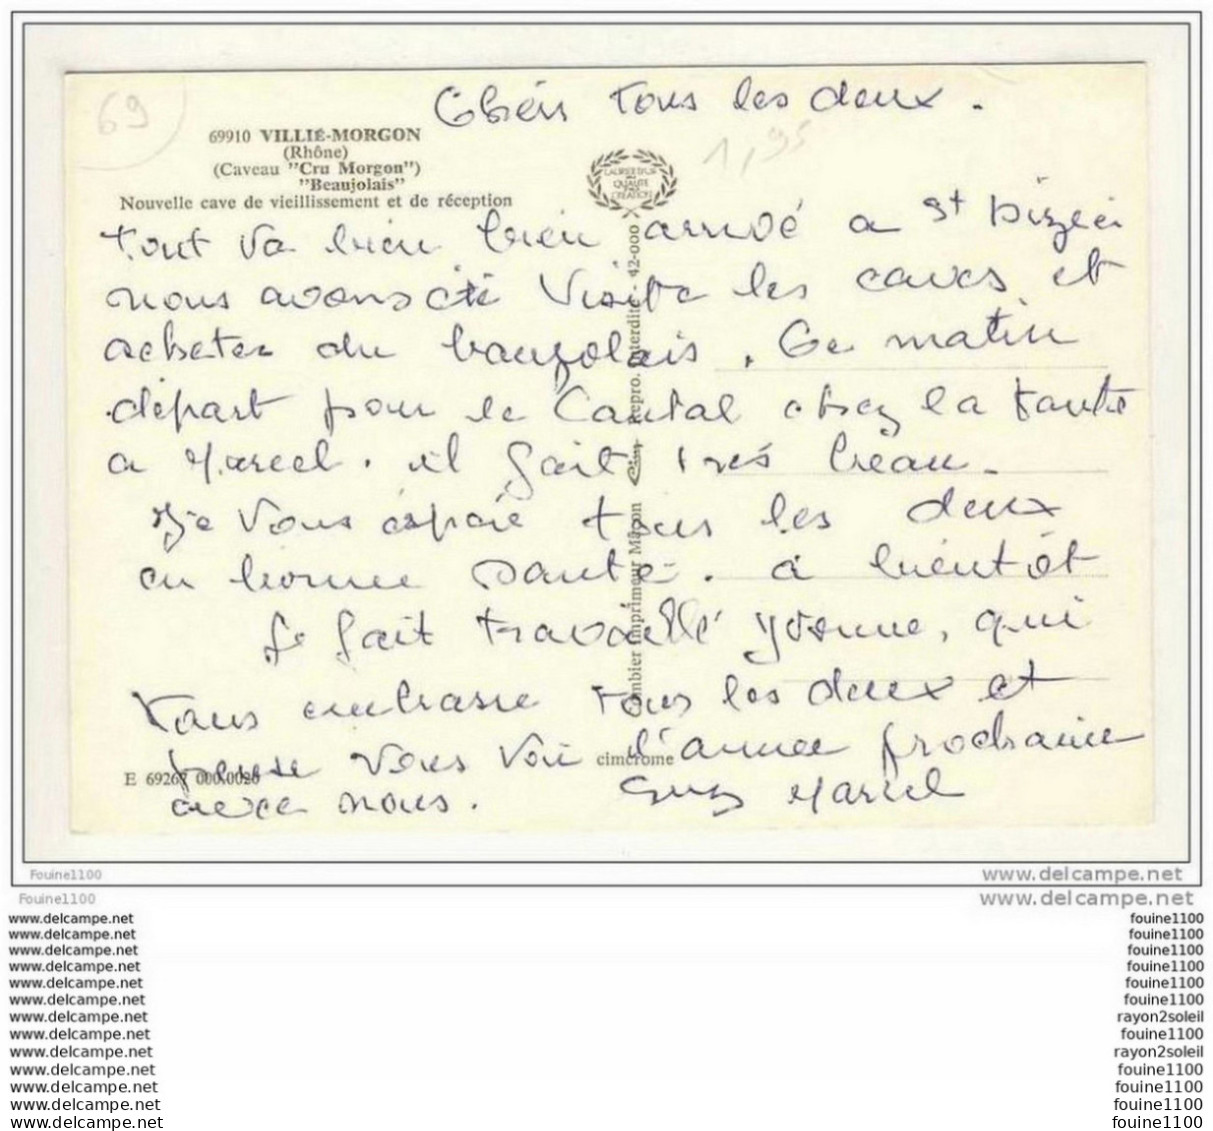 69
Chers tous les deux.
1,95
69910 VILLIÉ-MORGON
(Rhône)
(Caveau "Cru Morgon")
"Beaujolais"
Nouvelle cave de vieillissement et de réception
LAURIER D'OR
DE
QUALITÉ
CRÉATION
tout va bien bien arrivé a St Dizier
nous avons été visite les caves et
acheter du beaujolais. Ce matin
départ pour le Cantal chez la tante
a Marcel. il fait très beau.
Je vous espère tous les deux
en bonne santé. a bientôt
Je fait travaillé Yvonne, qui
vous embrasse tous les deux et
pense vous voir l'année prochaine
avec nous. Suzy Marcel
Combier Imprimeur Mâcon Cim Repro. Interdite - 42-000
cimcrome
E 69267 000.0020
Fouine1100
www.delcampe.net
Fouine1100
www.delcampe.net
www.delcampe.net
fouine1100
www.delcampe.net
fouine1100
www.delcampe.net
fouine1100
www.delcampe.net
fouine1100
www.delcampe.net
fouine1100
www.delcampe.net
fouine1100
www.delcampe.net
rayon2soleil
www.delcampe.net
fouine1100
www.delcampe.net
rayon2soleil
www.delcampe.net
fouine1100
www.delcampe.net
fouine1100
www.delcampe.net
fouine1100
www.delcampe.net
fouine1100